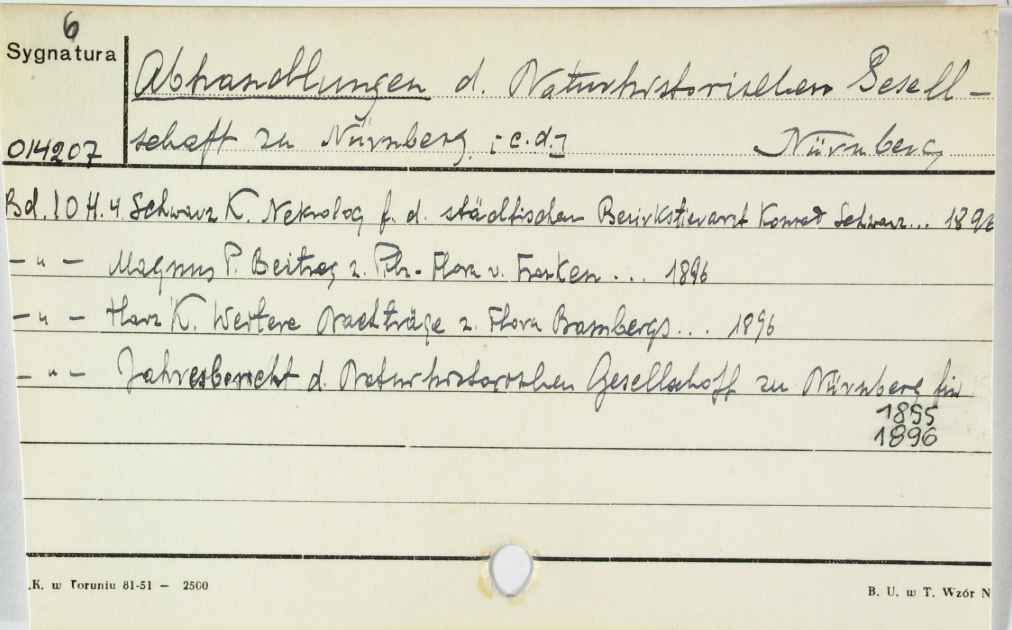 6
Sygnatura
014207
Abhandlungen d. Naturhistorischen Gesell-
schaft zu Nürnberg. [c.d.] Nürnberg
Bd. 10 H. 4 Schwarz K. Nekrolog f. d. städtischen Bezirkstierarzt Konrad Schwarz... 1896
- " - Magnus P. Beitrag z. Pilz-Flora v. Franken... 1896
- " - Harz K. Weitere Nachträge z. Flora Bambergs... 1896
- " - Jahresbericht d. Naturhistorischen Gesellschaft zu Nürnberg für
1895
1896
.K. w Toruniu 81-51 — 2500
B. U. w T. Wzór N